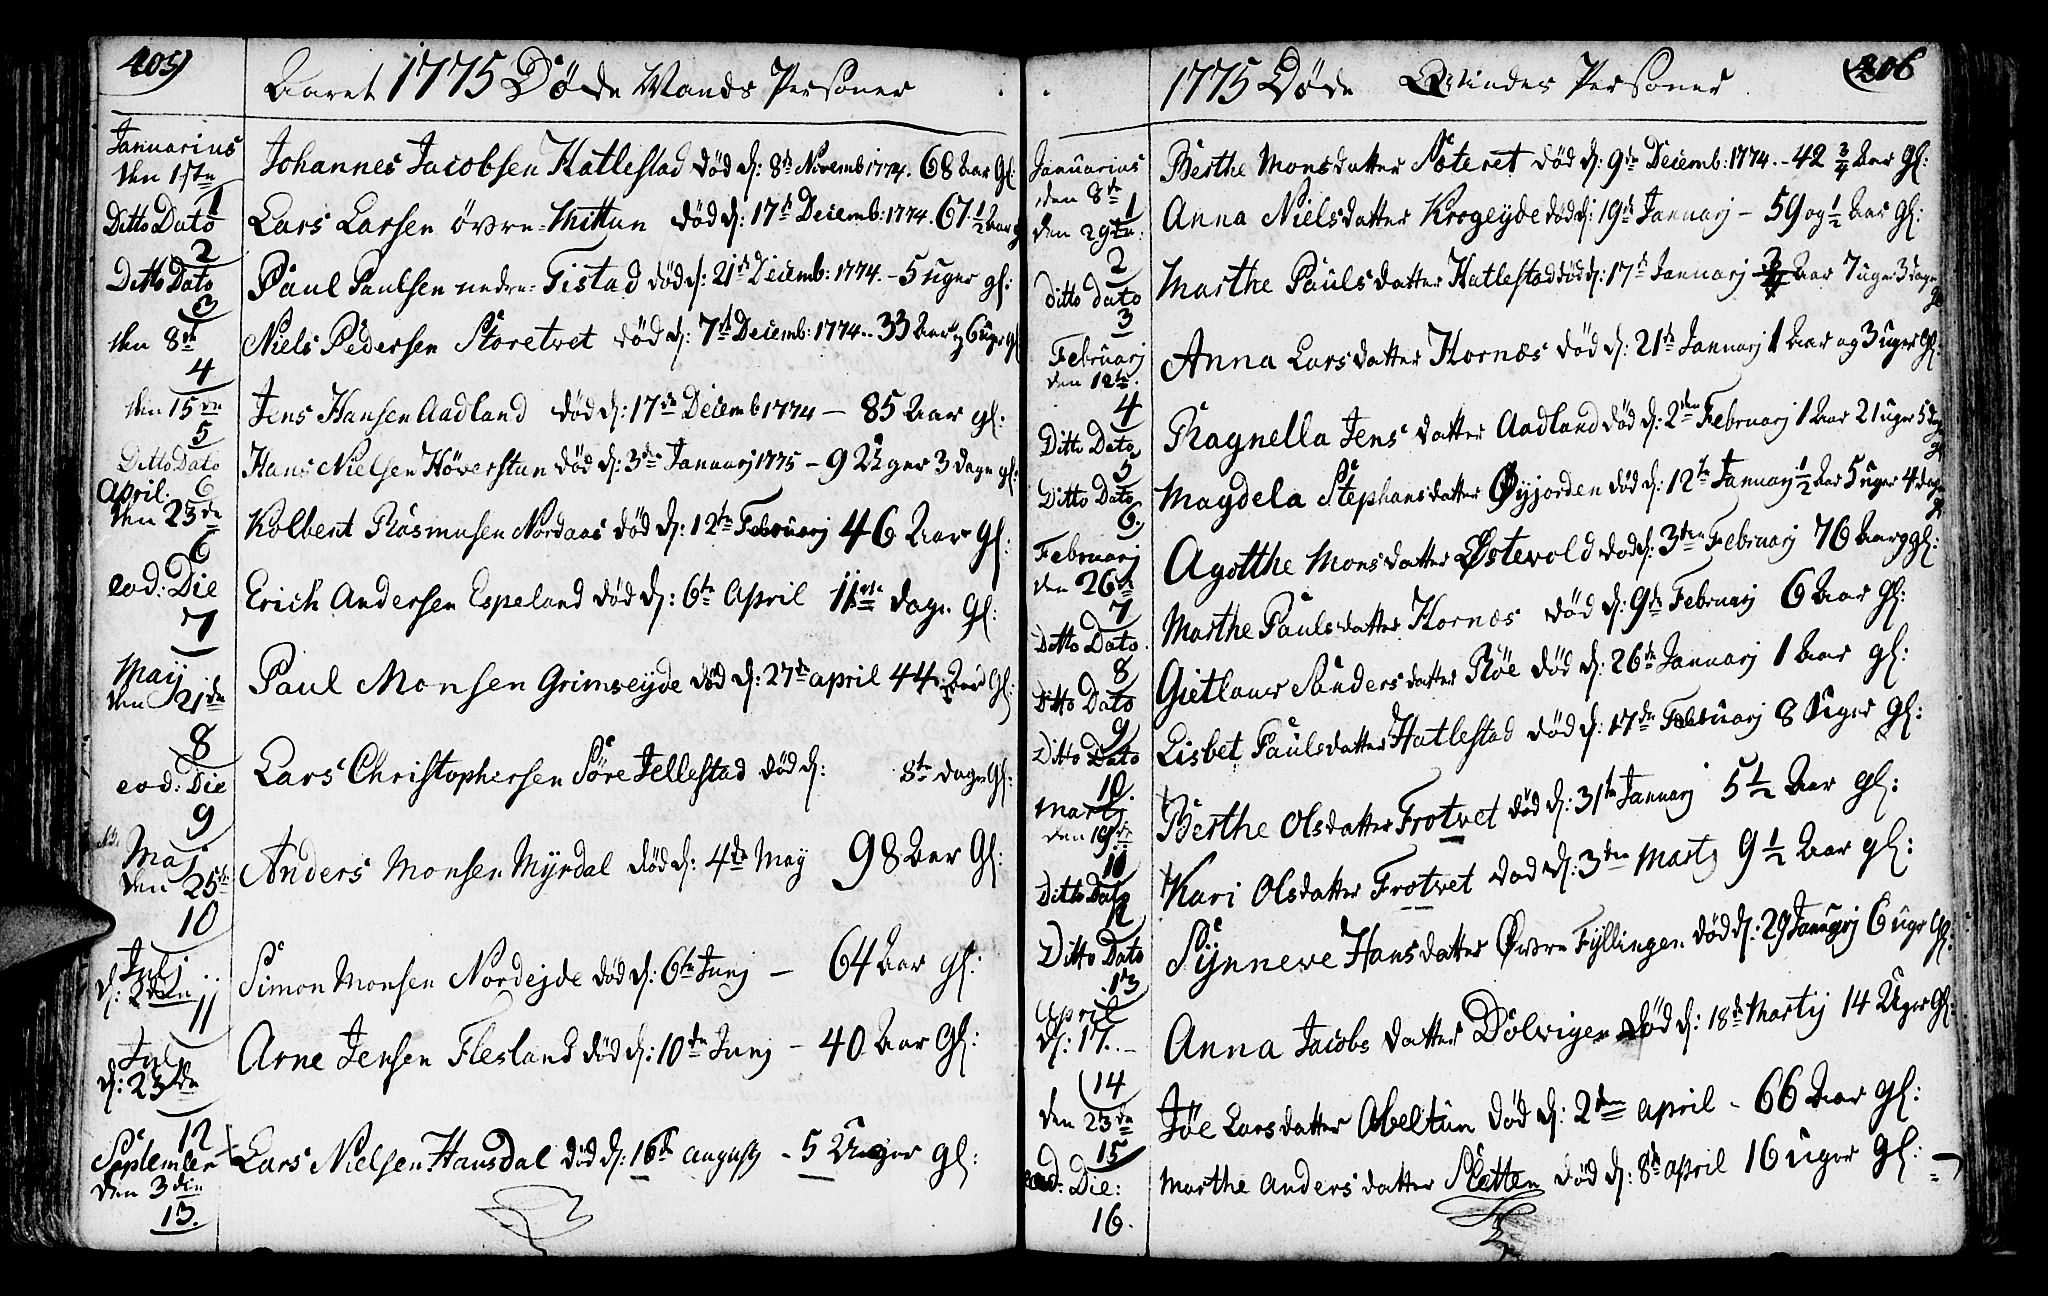 405)
Aaret 1775 Døde Mands Personer
Januarius
den 1ste
1
Johannes Jacobsen Hatlestad død d: 8de Novemb 1774. 68 Aar Gl:
Ditto Dato
2
Lars Larsen övre-Mittun død d: 17de Decemb: 1774. 67 1/2 Aar g
Ditto Dato
3
Paul Paulsen nedre-Tistad død d: 21de Decemb: 1774. - 5 uger gl:
den 8de
4
Niels Pedersen Storetvet død d: 7de Decemb: 1774. 33 Aar og 6 uger gl
den 15de
5
Jens Hansen Aadland død d: 17de Decemb 1774 - 85 Aar gl:
Ditto Dato
6
Hans Nielsen Höverstun død d: 3de Januarj 1775 - 9 Uger 3 dage gl:
April:
den 23de
6
Kolbent Rasmusen Nordaas død d: 12te Februarj 46 Aar gl:
eod: Die
7
Erich Andersen Espeland død d: 6te April 11 dage gl:
Maij
den 21de
8
Paul Monsen Grimseyde død d: 27de april 44 Aar Gl:
eod: Die
9
Lars Christophersen Söre Jellestad død d: 8te dage Gl:
Maj
den 25de
10
Anders Monsen Myrdal død d: 4de May 98 Aar Gl:
Julj
d: 2den
11
Simon Monsen Nordejde død d: 6te Junj - 64 Aar gl:
July
d: 23de
12
Arne Jensen Flesland død d: 10de Junj - 40 Aar Gl:
September
den 3die
13.
Lars Nielsen Hausdal død d: 16de augustj - 5 Uger gl:
406
1775 Døde Qvindes Personer
Januarius
den 8de
1
Berthe Monsdatter Steret død d: 9de Decemb: 1774. - 42 3/4 Aar gl:
den 29de:
2
Anna Nielsdatter Krogeyde død d: 19de Januarj - 59 og 1/2 Aar gl:
ditto dato
3
Marthe Paulsdatter Hatlestad død d: 17de Januarj 3/4 Aar 7 uger 3 dage
gl
Februarj
den 12te.
4
Anna Larsdatter Hornæs død d: 21de Januarj 1 Aar og 3 uger Gl:
Ditto Dato
5
Ragnella Jensdatter Aadland død d: 2den Februarj 1 Aar 21 uger 5 dage
gl
Ditto Dato
6.
Magdela Stephansdatter Øyjorden død d: 12te Januarj 1/2 Aar 5 uger 4 dage
gl
Februarj
den 26de
7
Agotthe Monsdatter Østevold død d: 3den Februarj 76 Aar gl:
Ditto Dato.
8
Marthe Paulsdatter Hornæs død d: 9de Februarj 6 Aar gl:
Ditto Dato
9
Gietlaur Sandersdatter Røe død d: 26de Januarj 1 Aar gl:
Ditto Dato
10.
Lisbet Paulsdatter Hatlestad død d: 17de Februarj 8 Uger gl:
Martij
den 19de
11
Berthe Olsdatter Frotvet død d: 31te Januarj 5 1/2 Aar gl:
Ditto Dato
12
Kari Olsdatter Frotvet død d: 3den Martz 9 1/2 Aar gl:
Ditto Dato
13
Synneve Hansdatter Øvre Fyllingen død d: 29 Januarj 6 uger Gl:
April
d: 17.
14
Anna Jacobsdatter Dolvigen død d: 18de Martij 14 Uger Gl:
den 23de
15
Jöe Larsdatter Abeltun død d: 2den april - 66 Aar gl:
eod: Die:
16.
Marthe Andersdatter Sletten død d: 8de april 16 uger Gl: